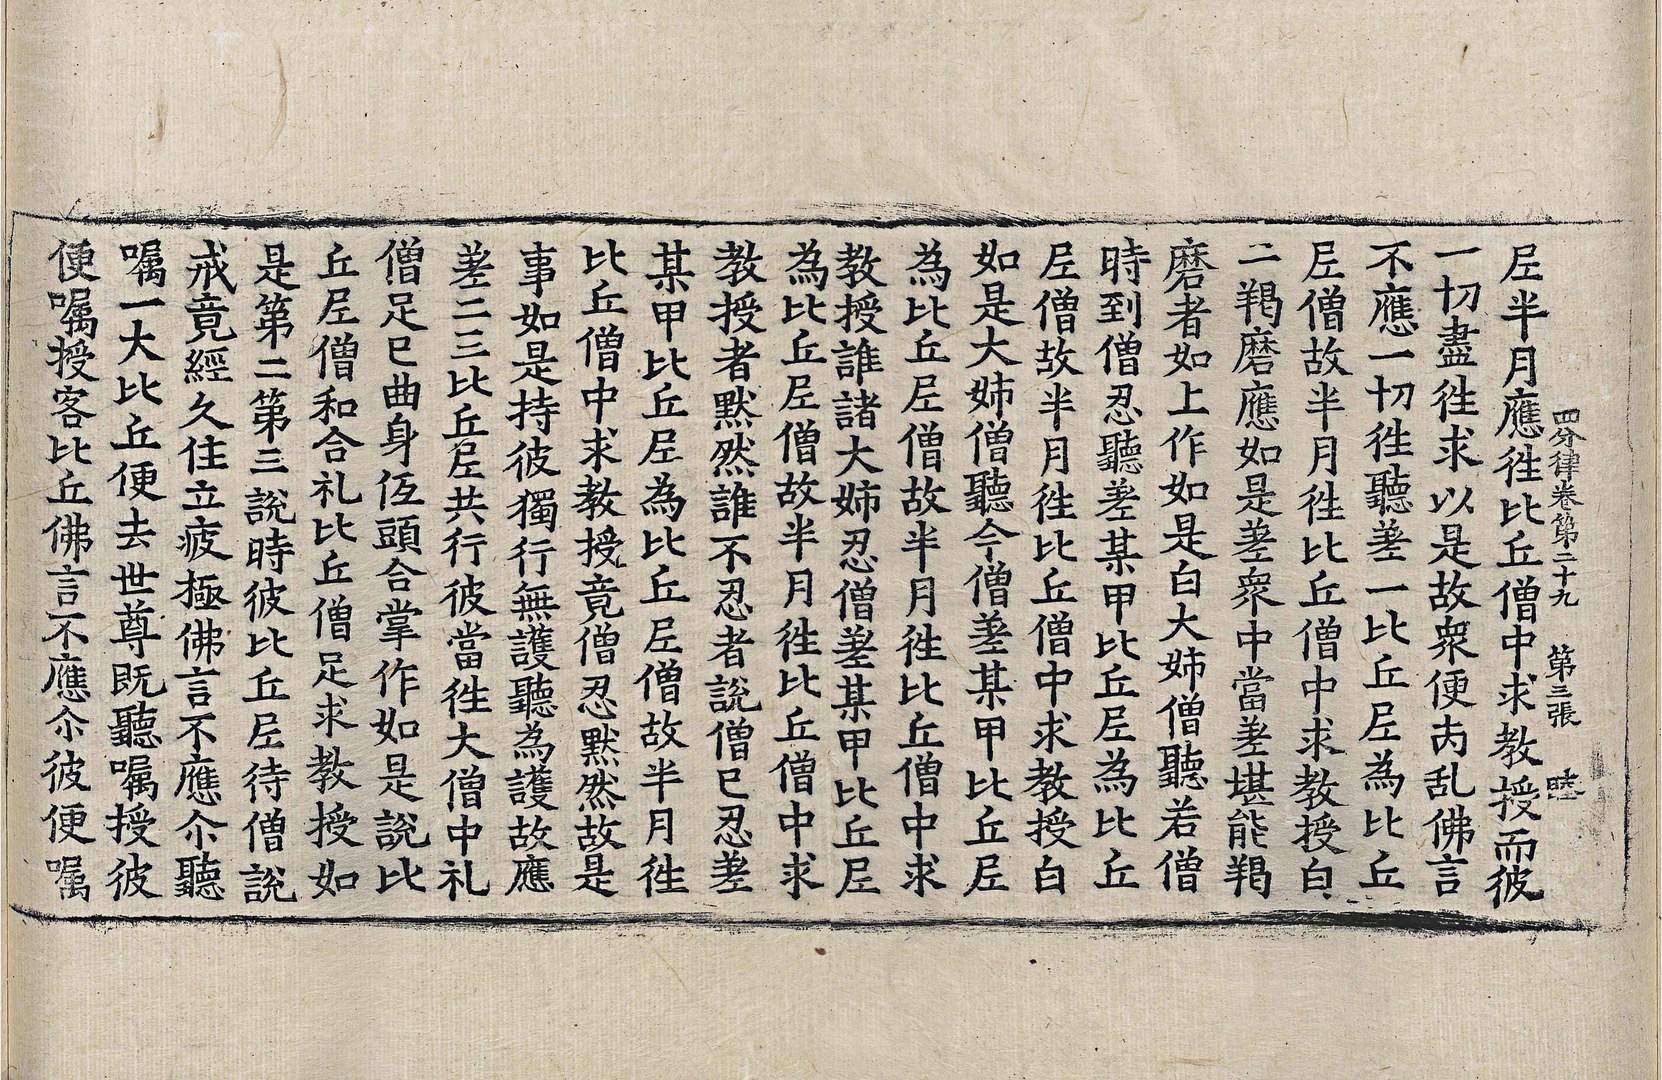 四分律卷第二十九　第三張　睦
尼半月應徃比丘僧中求教授而彼
一切盡徃求以是故衆便内乱佛言
不應一切徃聽差一比丘尼為比丘
尼僧故半月徃比丘僧中求教授白
二羯磨應如是差衆中當差堪能羯
磨者如上作如是白大姊僧聽若僧
時到僧忍聽差某甲比丘尼為比丘
尼僧故半月徃比丘僧中求教授白
如是大姊僧聽今僧差某甲比丘尼
為比丘尼僧故半月徃比丘僧中求
教授誰諸大姊忍僧差某甲比丘尼
為比丘尼僧故半月徃比丘僧中求
教授者默然誰不忍者說僧已忍差
某甲比丘尼為比丘尼僧故半月徃
比丘僧中求教授竟僧忍默然故是
事如是持彼獨行無護聽為護故應
差二三比丘尼共行彼當徃大僧中礼
僧足已曲身低頭合掌作如是說比
丘尼僧和合礼比丘僧足求教授如
是第二第三說時彼比丘尼待僧說
戒竟經久住立疲極佛言不應尒聽
嘱一大比丘便去世尊既聽嘱授彼
便嘱授客比丘佛言不應尒彼便嘱